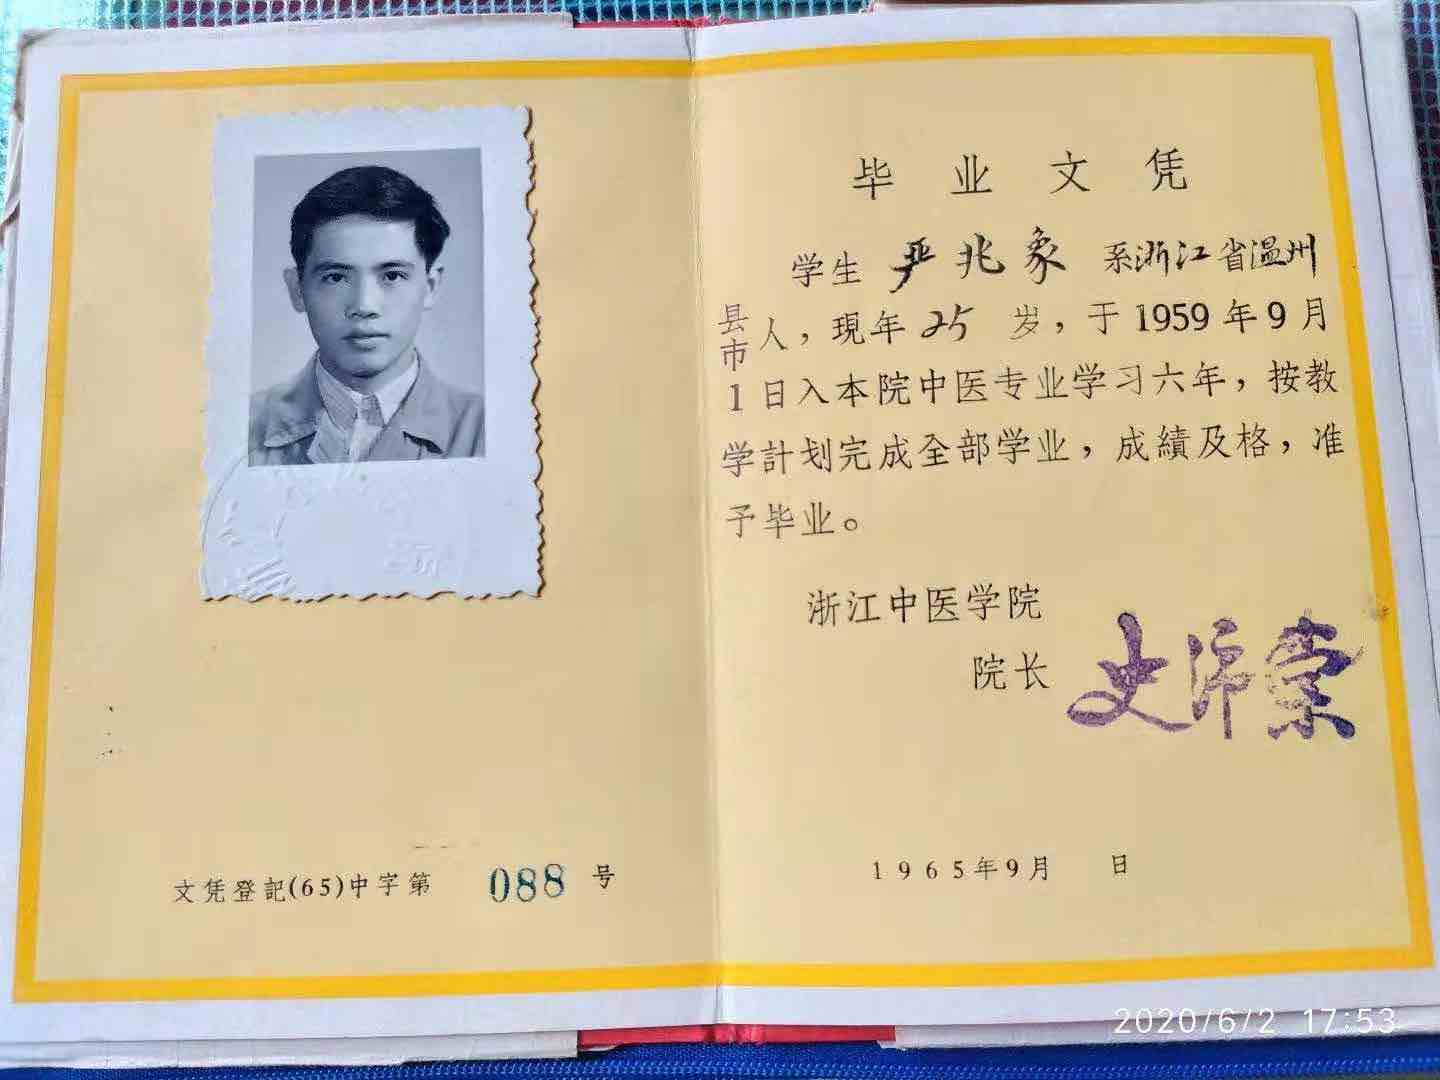 毕业文凭
学生 严兆象 系浙江省温州
县
市
人，現年 25 岁，于 1959 年 9 月
1 日入本院中医专业学习六年，按教
学計划完成全部学业，成績及格，准
予毕业。
浙江中医学院
院长
1965年9月 日
文凭登記(65)中字第 088 号
2020/6/2 17:53